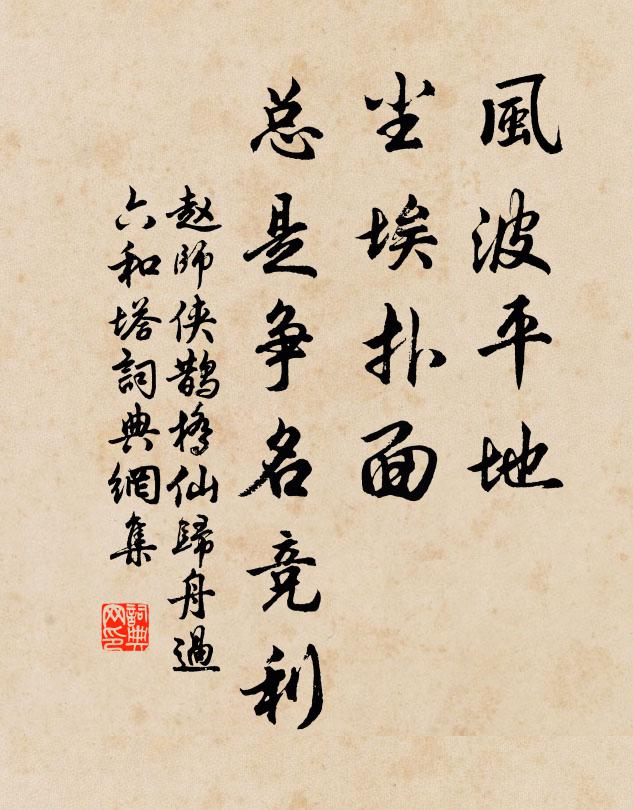 風波平地
尘埃扑面
总是争名竞利
赵師侠鹊橋仙歸舟過
六和塔詞典網集
詞典网印